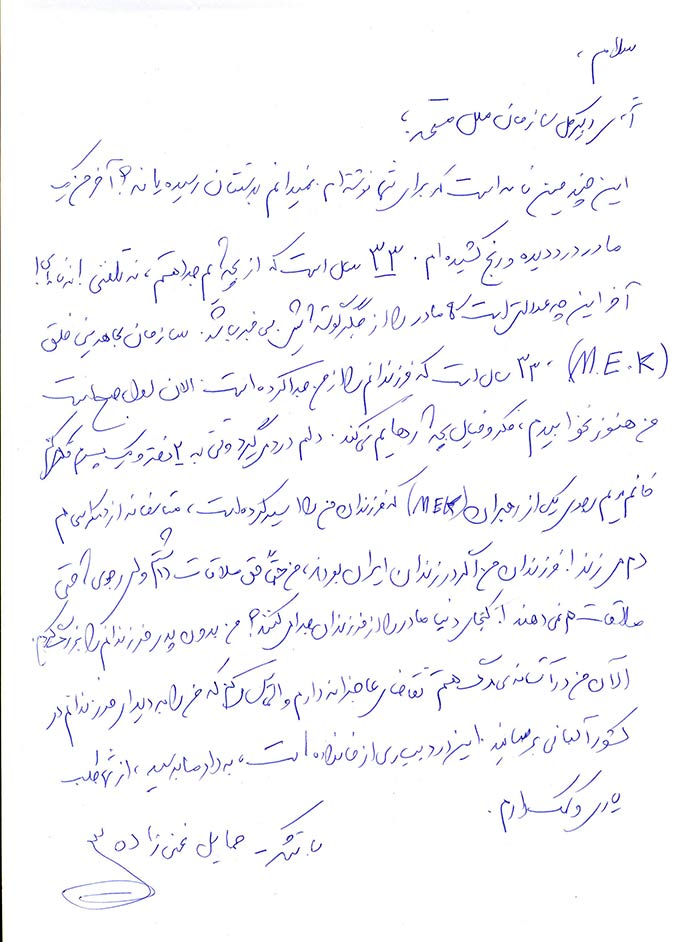 سلام ،
آقای دبیرکل سازمان ملل متحد ؛
این چندمین نامه است که برای شما نوشته ام . نمیدانم بدستتان رسیده یا نه ؟ آخر من یک
مادر درد دیده و رنج کشیده ام . ۳۳ سال است که از بچه هایم جدا هستم ، نه تلفنی ! نه نامه ای !
آخر این چه عدالتی است که مادر را از جگرگوشه هایش بی خبر باشد . سازمان مجاهدین خلق
(M.E.K) ۳۳ سال است که فرزندانم را از من جدا کرده است . الان اول صبح است
من هنوز نخوابیدم ، فکر و خیال بچه ها رهایم نمی کند . دلم درد می گیرد وقتی به ۲ دختر و یک پسرم فکر می کنم
خانم مریم رجوی یکی از رهبران (MEK) که فرزندان من را اسیر کرده است ، متاسفانه از دمکراسی هم
دم می زند ! فرزندان من اگر در زندان ایران بودند ، من حتما حق ملاقات داشتم ولی رجوی حتی
ملاقات هم نمی دهند ! کجای دنیا مادر را از فرزندان جدا می کنند ؟ من بدون پدر فرزندانم را بزرگ کردم .
الان من در آستانه مرگ هستم تقاضای عاجزانه دارم و التماس می کنم که من را به دیدار فرزندانم در
کشور آلبانی برسانید . این درد بسیاری از خانواده است ، به داد ما برسید ، از شما طلب
یاری و کمک دارم .
با تشکر - حمایل غنی زاده